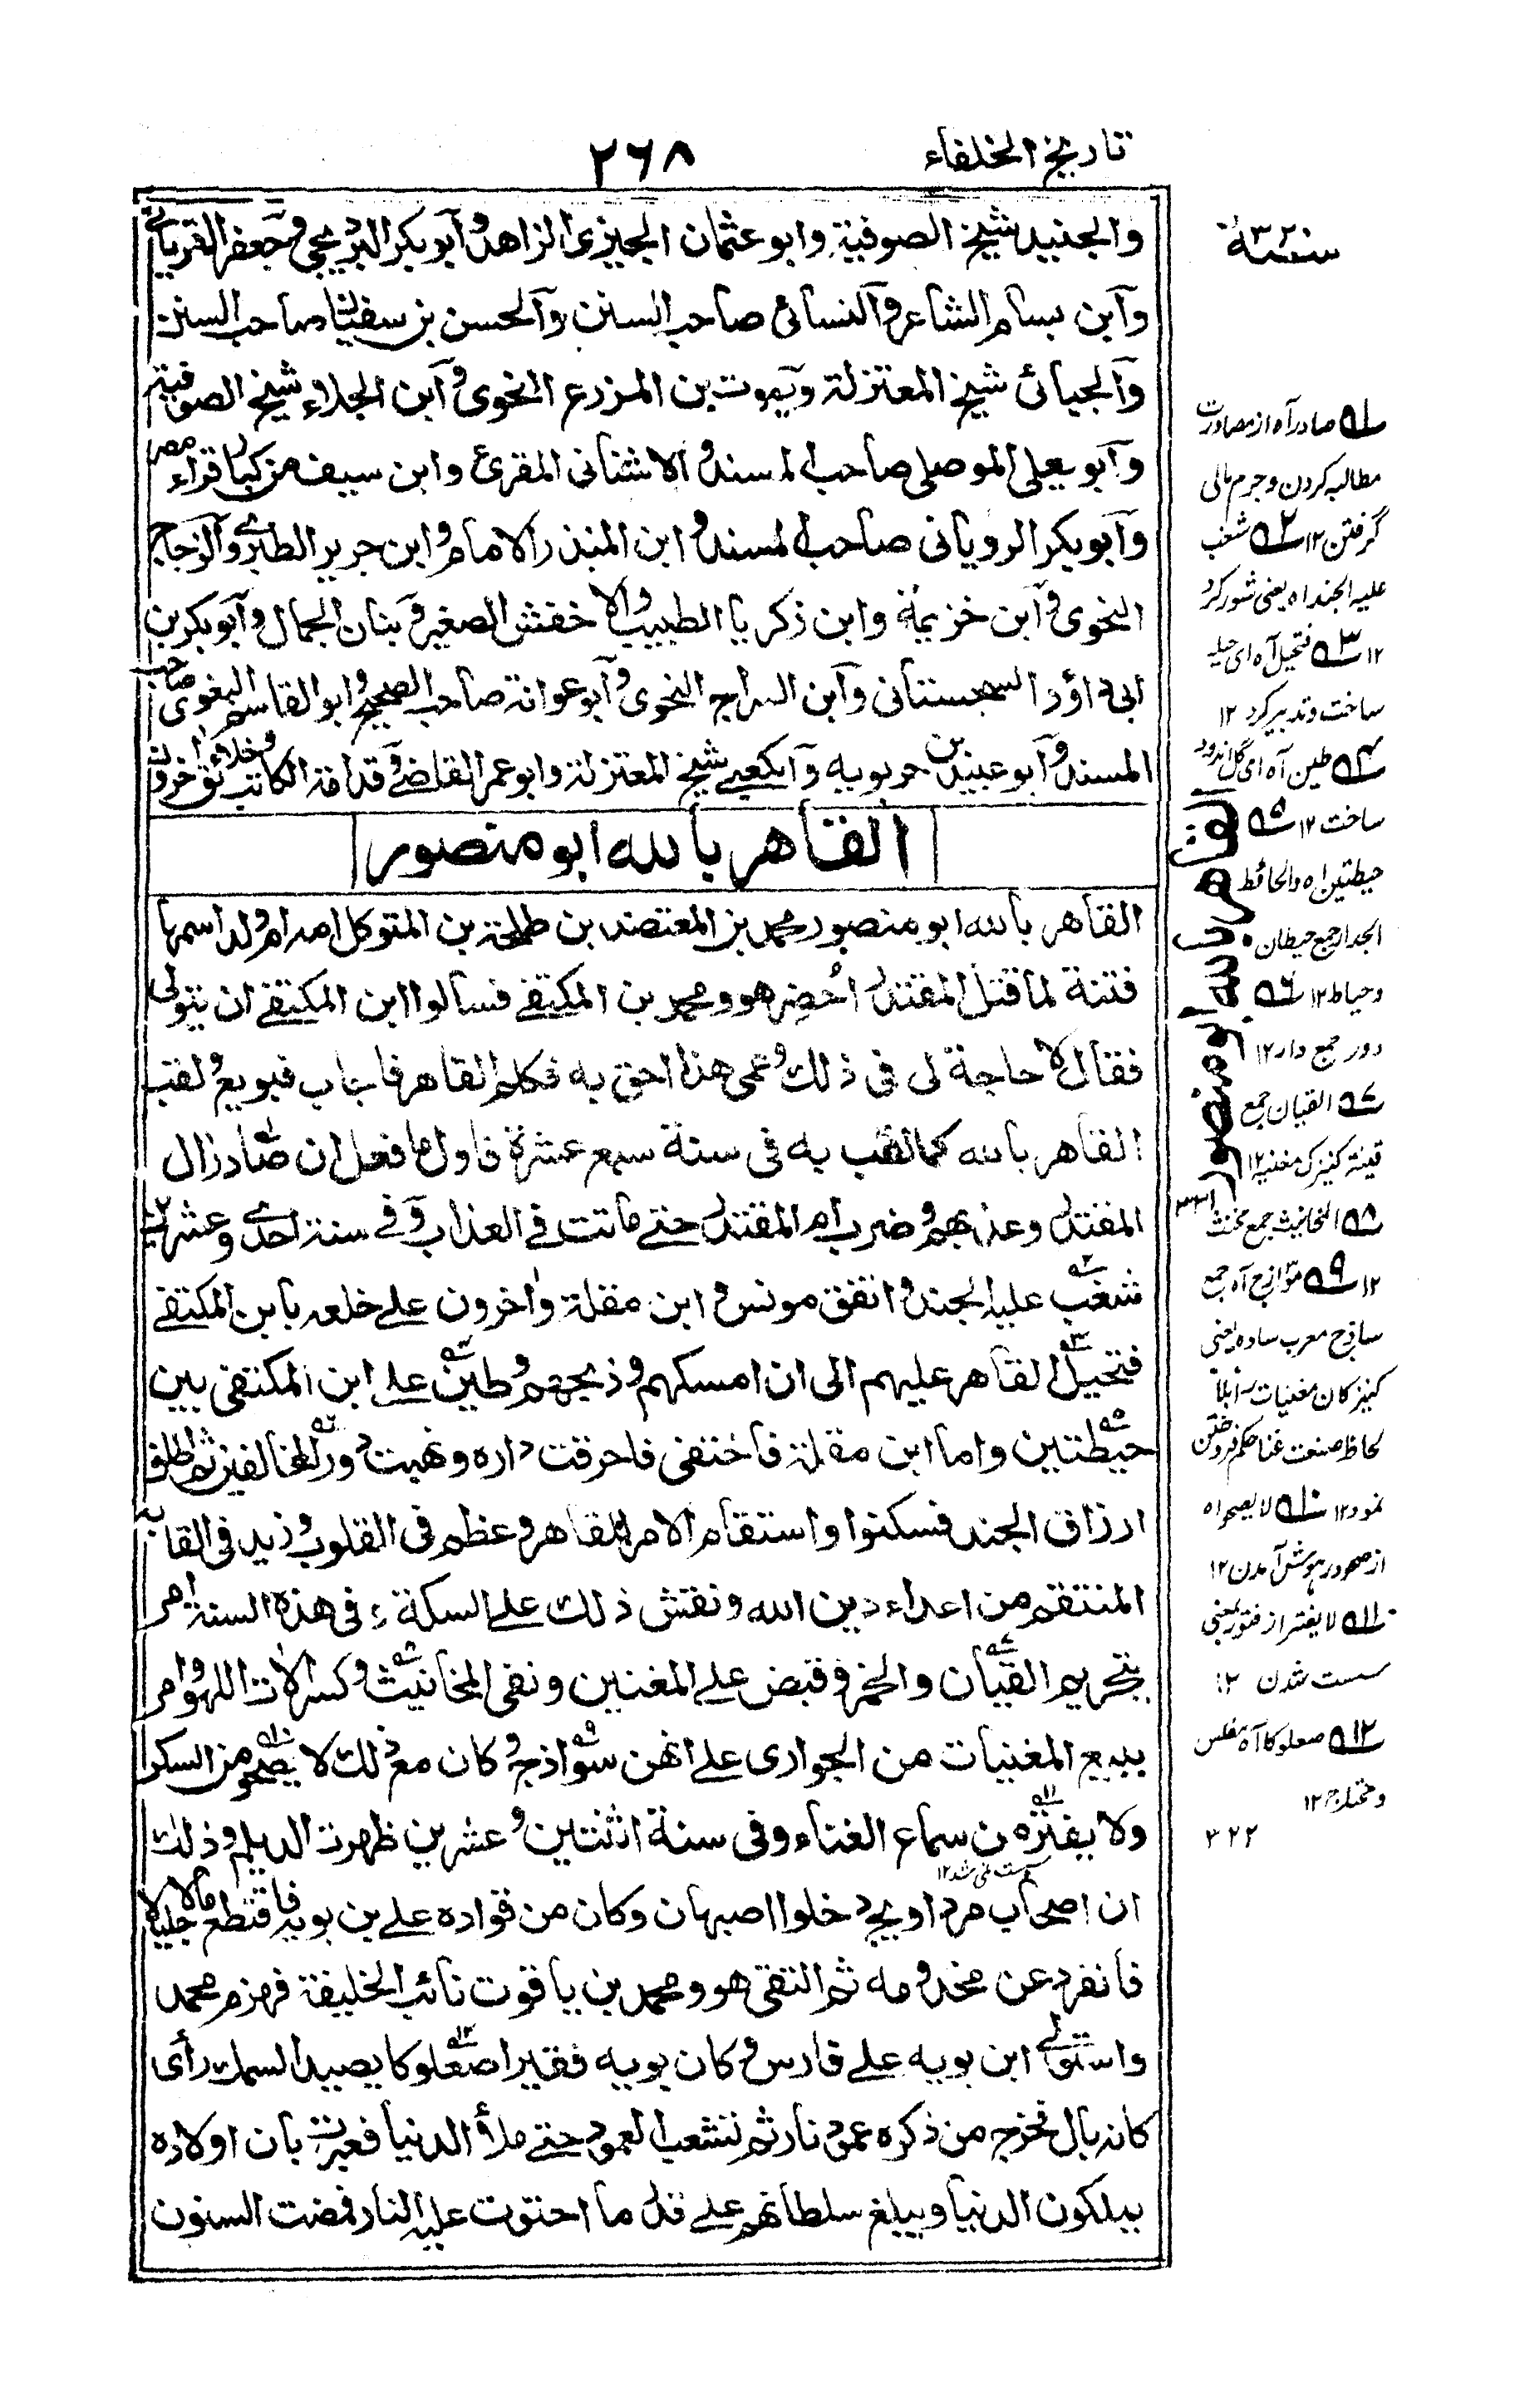 تاريخ الخلفاء
٢٦٨
والجنيد شيخ الصوفية وابو عثمان الحيزى الزاهد وابو بكر البرديجى وجعفر القريابى
وابن بسام الشاعر والنسائى صاحب السنن والحسن بن سفيان صاحب السنن
والجبائى شيخ المعتزلة ويموت بن المزرع النحوى وابن الجلاء شيخ الصوفية
وابو يعلى الموصلى صاحب المسند والاشنانى المقرئ وابن سيف من كبار قراء مصر
وابو بكر الرويانى صاحب المسند وابن المنذر الامام وابن جرير الطبرى والزجاج
النحوى وابن خزيمة وابن زكريا الطبيب والاخفش الصغير وبنان الجمال وابو بكر بن
ابى داؤد السجستانى وابن السراج النحوى وابو عوانة صاحب الصحيح وابو القاسم البغوى صاحب
المسند وابو عبيد بن حربويه والكعبى شيخ المعتزلة وابو عمر القاضى وقدامة الكاتب وخلائق اخرون
القاهر بالله ابو منصور
القاهر بالله ابو منصور محمد بن المعتضد بن طلحة بن المتوكل امه ام ولد اسمها
فتنة لما قتل المقتدر احضر هو ومحمد بن المكتفى فسالوا ابن المكتفى ان يتولى
فقال لا حاجة لى فى ذلك وعمى هذا احق به فكلم القاهر فاجاب فبويع ولقب
القاهر بالله كما لقب به فى سنة سبع عشرة فاول ما فعل ان صادر ال
المقتدر وعذبهم وضرب ام المقتدر حتى ماتت فى العذاب وفى سنة احدى وعشرين
شغب عليه الجند واتفق مونس وابن مقلة واخرون على خلعه بابن المكتفى
فتحيل القاهر عليهم الى ان امسكهم وذبحهم وطين على ابن المكتفى بين
حيطتين واما ابن مقلة فاختفى فاحرقت داره ونهبت دور المخالفين ثم اطلق
ارزاق الجند فسكنوا واستقام الامر للقاهر وعظم فى القلوب وزيد فى القابه
المنتقم من اعداء دين الله ونقش ذلك على السكة وفى هذه السنة امر
بتحريم القيان والخمر وقبض على المغنين ونفى المخانيث وكسر الات اللهو وامر
ببيع المغنيات من الجوارى على انهن سواذج وكان مع ذلك لا يصحو من السكر
ولا يفتر عن سماع الغناء وفى سنة اثنتين وعشرين ظهرت الديلم وذلك
ان اصحاب مرداويج دخلوا اصبهان وكان من قواده على بن بويه فاقتطع مالا جليلا
فانفرد عن مخدومه ثم التقى هو ومحمد بن ياقوت نائب الخليفة فهزم محمد
واستولى ابن بويه على فارس وكان بويه فقيرا صعلوكا يصيد السمك رأى
كانه بال فخرج من ذكره عمود نار ثم تشعب العمود حتى ملأ الدنيا فعبرت بان اولاده
يملكون الدنيا ويبلغ سلطانهم على قدر ما احتوت عليه النار فمضت السنون
سنة ٣٢٠
١ صادر آه از مصادرت
مطالبه كردن وجرم مالى
گرفتن ١٢ ٢ شغب
عليه الجند اه يعنى شور كرد
١٢ ٣ فتحيل آه اى حيله
ساخت وتدبير كرد ١٢
٤ طين آه اى گل اندود
ساخت ١٢ ٥
حيطتين اه والحائط
الجدار جمع حيطان
وحياط ١٢ ٦
دور جمع دار ١٢
٧ القيان جمع
قينة كنيزك مغنيه ١٢
٨ المخانيث جمع مخنث
١٢ ٩ سواذج آه جمع
ساذج معرب ساده يعنى
كنيزكان مغنيات را بلا
لحاظ صنعت غنا حكم فروختن
نمود ١٢ ١٠ لا يصحو اه
از صحو در هوش آمدن ١٢
١١ لا يفتر از فتور يعنى
سست شدن ١٢
١٢ صعلوكا آه مفلس
ومحتاج ١٢
٣٢٢
القاهر بالله ابو منصور
٣٢١